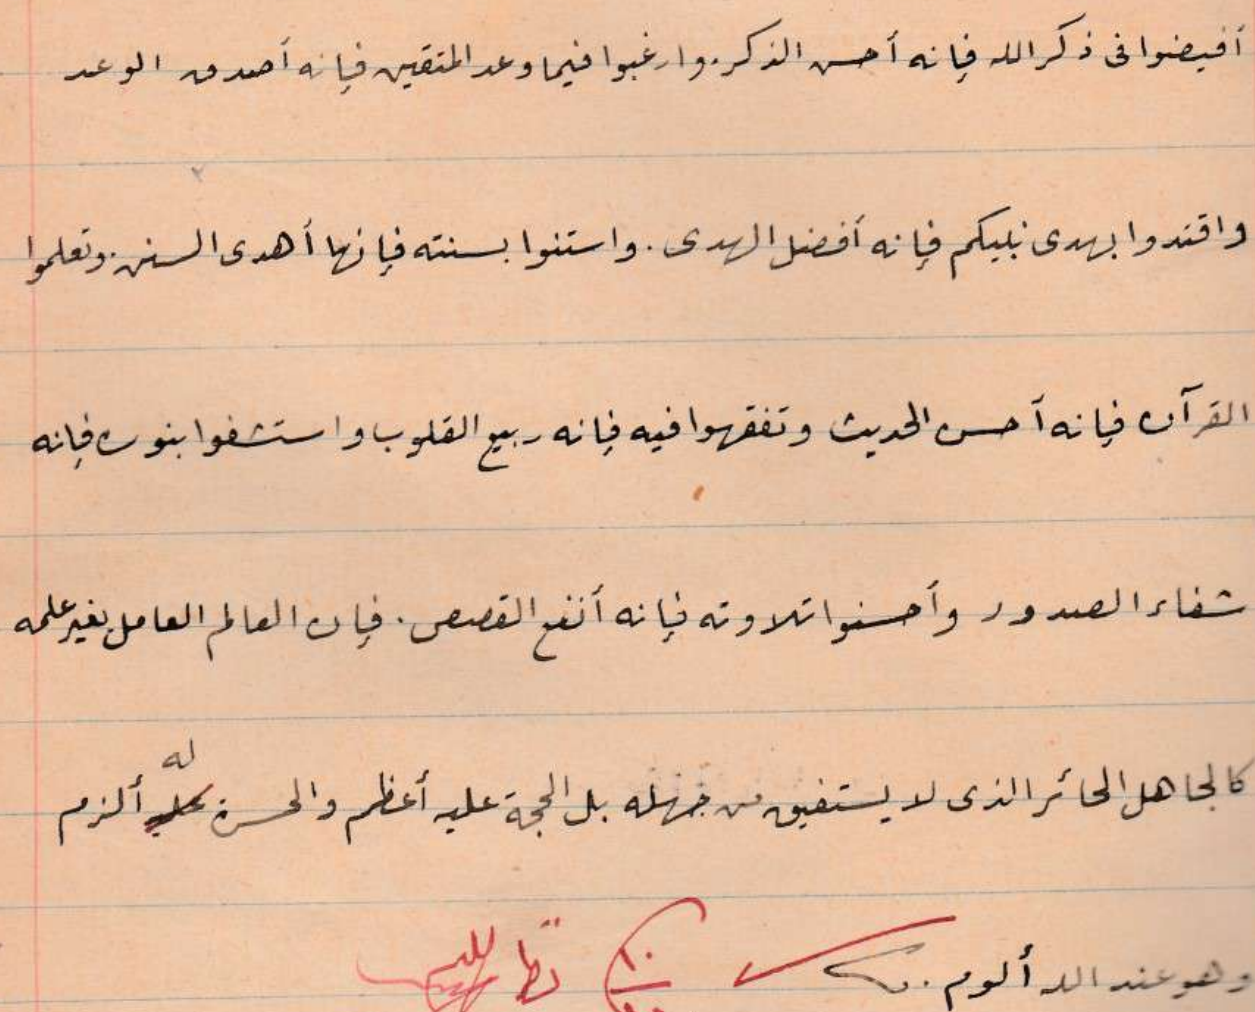 أفيضوا فى ذكر الله فإنه أحسن الذكر. وارغبوا فيما وعد المتقين فإنه أصدق الوعد
واقتدوا بهدى نبيكم فإنه أفضل الهدى. واستنوا بسنته فإنها أهدى السنن. وتعلموا
القرآن فإنه أحسن الحديث وتفقهوا فيه فإنه ربيع القلوب واستشفوا بنوره فإنه
شفاء الصدور وأحسنوا تلاوته فإنه أنفع القصص. فإن العالم العامل بغير علمه
كالجاهل الحائر الذى لا يستفيق من جهله بل الحجة عليه أعظم والحسرة له ألزم
وهو عند الله ألوم.
١٠